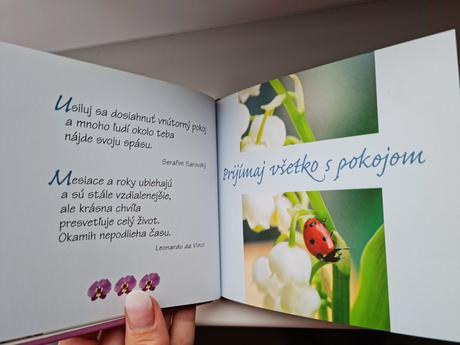 Usiluj sa dosiahnuť vnútorný pokoj
a mnoho ľudí okolo teba
nájde svoju spásu.
Serafim Sarovský
Mesiace a roky ubiehajú
a sú stále vzdialenejšie,
ale krásna chvíľa
presvetľuje celý život.
Okamih nepodlieha času.
Leonardo da Vinci
Prijímaj všetko s pokojom